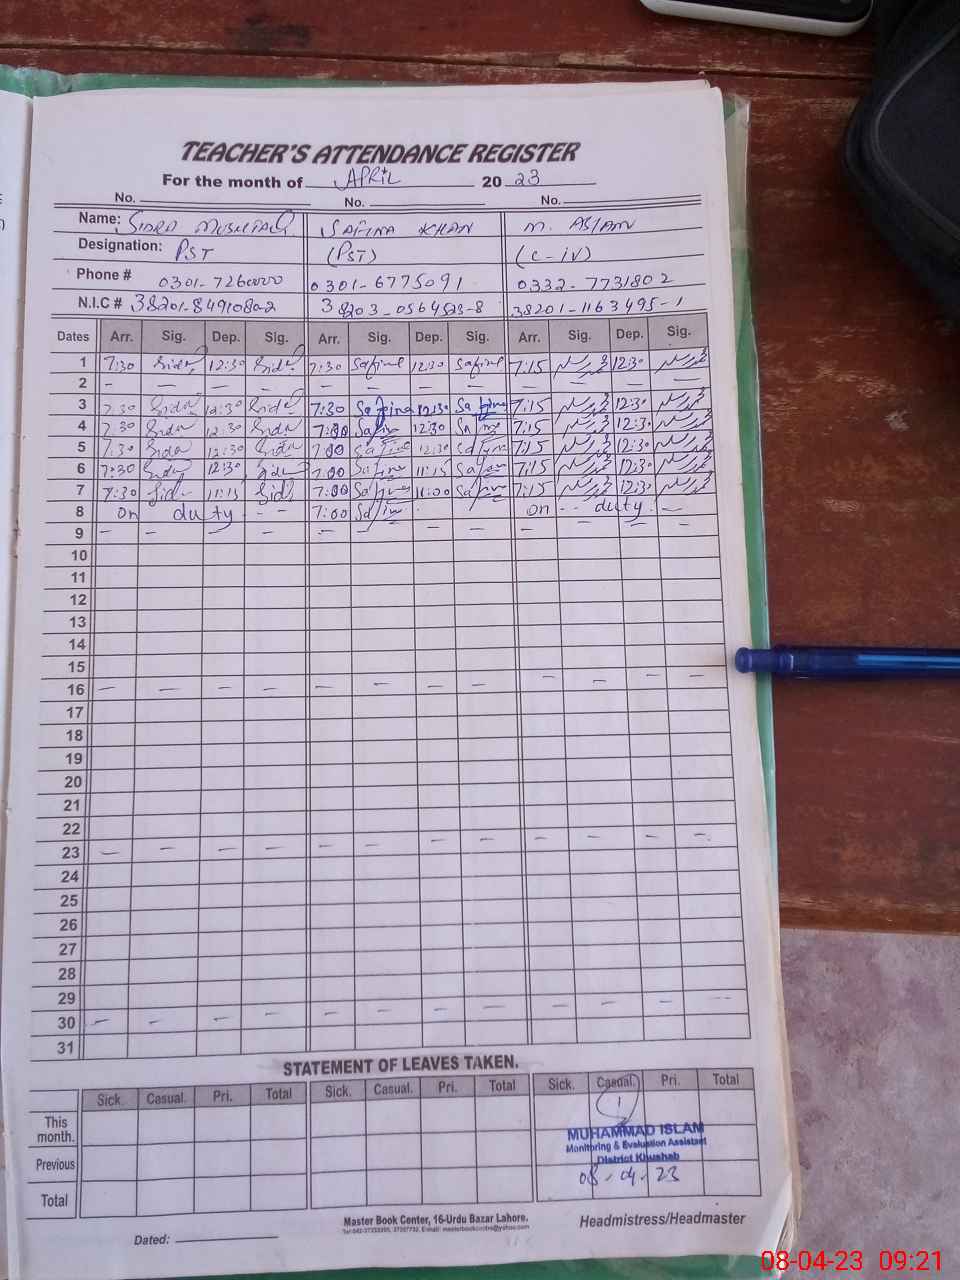 TEACHER'S ATTENDANCE REGISTER
For the month of APRIL 20 23
No. No. No.
Name: SIDRA MUSHTAQ SAFINA KHAN M. ASLAM
Designation: PST (PST) (C-IV)
Phone # 0301-7260000 0301-6775091 0332-7731802
N.I.C # 38201-8491080-2 38203-0564523-8 38201-1163495-1
Dates Arr. Sig. Dep. Sig. Arr. Sig. Dep. Sig. Arr. Sig. Dep. Sig.
1 7:30 Sidra 12:30 Sidra 7:30 Safina 12:30 Safina 7:15 12:30
2 - - - - - - - - - - - -
3 7:30 Sidra 12:30 Sidra 7:30 Safina 12:30 Safina 7:15 12:30
4 7:30 Sidra 12:30 Sidra 7:00 Safina 12:30 Safina 7:15 12:30
5 7:30 Sidra 12:30 Sidra 7:00 Safina 12:30 Safina 7:15 12:30
6 7:30 Sidra 12:30 Sidra 7:00 Safina 11:15 Safina 7:15 12:30
7 7:30 Sidra 11:15 Sidra 7:00 Safina 11:00 Safina 7:15 12:30
8 on duty - - 7:00 Safina on -- duty -
9 - - - - - - - - - - - -
10
11
12
13
14
15
16 - - - - - - - - - - - -
17
18
19
20
21
22
23 - - - - - - - - - - - -
24
25
26
27
28
29
30 - - - - - - - - - - - -
31
STATEMENT OF LEAVES TAKEN.
Sick. Casual. Pri. Total Sick. Casual. Pri. Total Sick. Casual. Pri. Total
This month. 1
Previous
Total
MUHAMMAD ISLAM
Monitoring & Evaluation Assistant
District Khushab
08-04-23
Master Book Center, 16-Urdu Bazar Lahore.
Dated: Headmistress/Headmaster
08-04-23 09:21